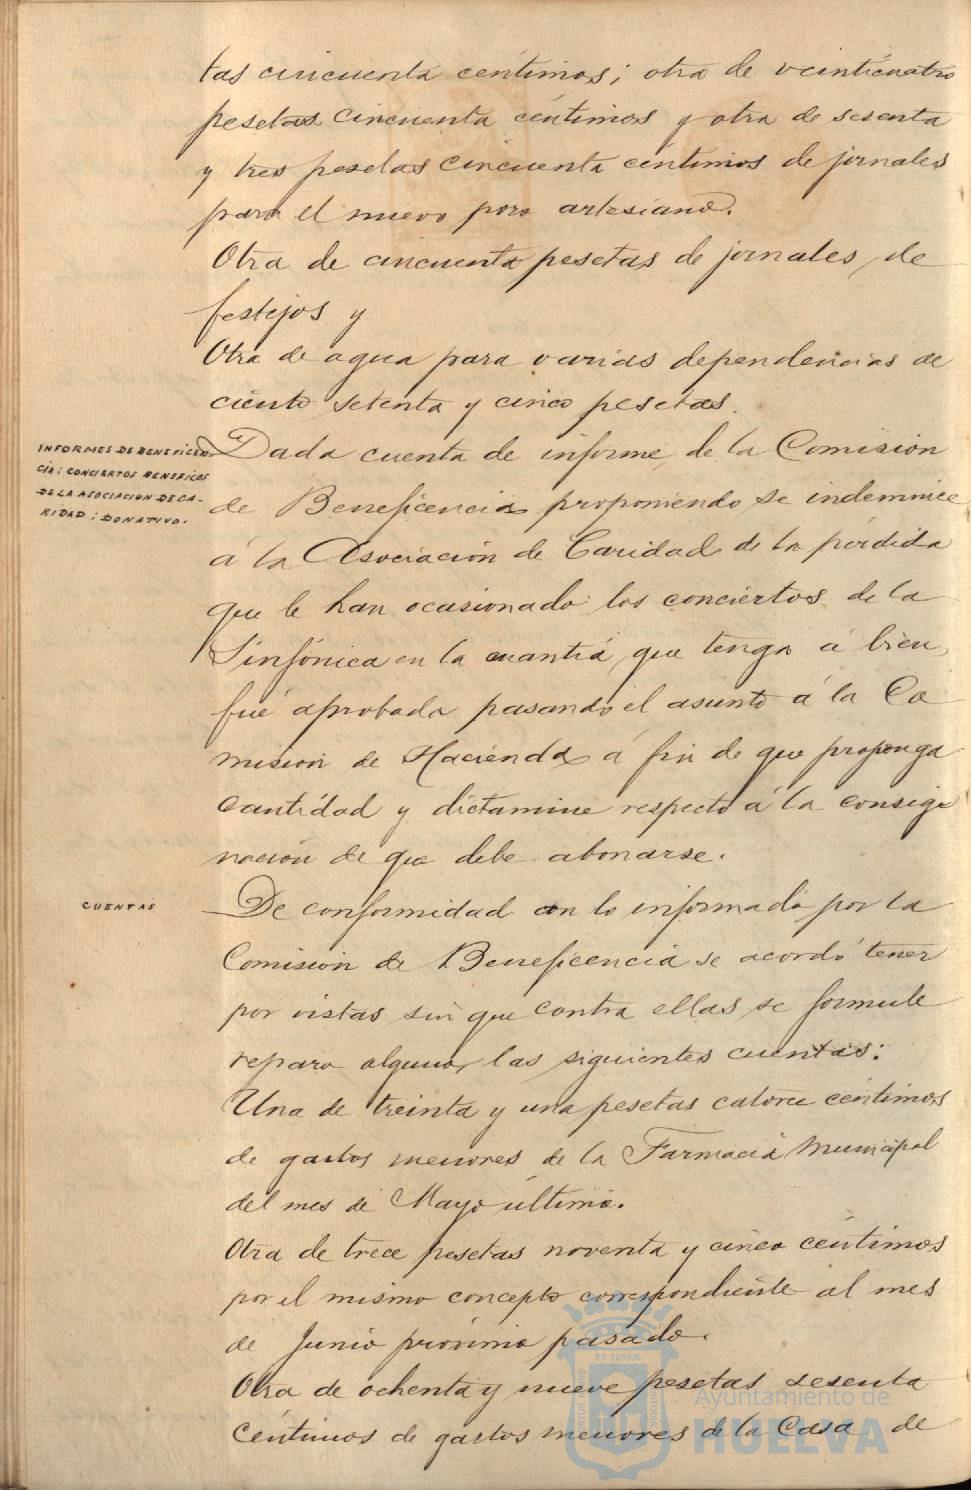 tas cincuenta centimos; otra de veinticuatro
pesetas cincuenta centimos y otra de sesenta
y tres pesetas cincuenta centimos de jornales
para el nuevo pozo artesiano.
Otra de cincuenta pesetas de jornales, de
festejos y
Otra de agua para varias dependencias de
ciento setenta y cinco pesetas.
INFORMES DE BENEFICEN-
CIA: CONCIERTOS BENEFICOS
DE LA ASOCIACION DE CA-
RIDAD: DONATIVO.
Dada cuenta de informe de la Comisión
de Beneficencia proponiendo se indemnice
á la Asociación de Caridad de la pérdida
que le han ocasionado los conciertos de la
Sinfónica en la cuantía que tenga á bien,
fué aprobada pasando el asunto á la Co
misión de Hacienda á fin de que proponga
cantidad y dictamine respecto á la consig
nación de que debe abonarse.
CUENTAS
De conformidad con lo informado por la
Comisión de Beneficencia se acordó tener
por vistas sin que contra ellas se formule
reparo alguno, las siguientes cuentas:
Una de treinta y una pesetas catorce centimos
de gastos menores de la Farmacia Municipal
del mes de Mayo último.
Otra de trece pesetas noventa y cinco céntimos
por el mismo concepto correspondiente al mes
de Junio próximo pasado.
Otra de ochenta y nueve pesetas sesenta
céntimos de gastos menores de la Casa de
ET TERRÆ
Ayuntamiento de
HUELVA